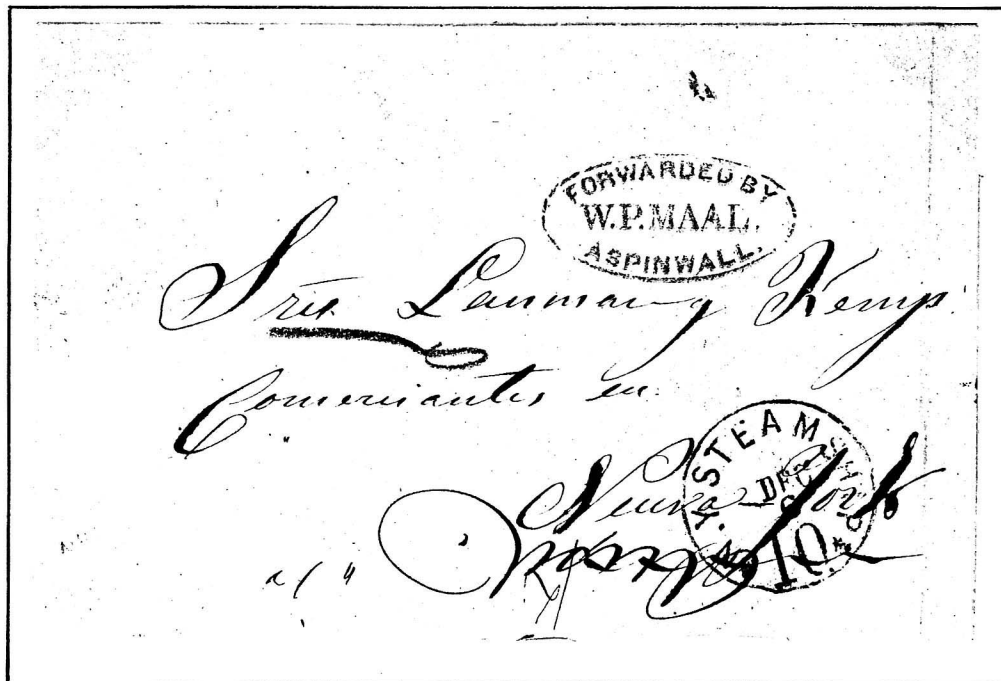 FORWARDED BY
W.P. MAAL.
ASPINWALL.
Sres Lanman y Kemp
Comerciantes en
Nueva York
N.Y. STEAMSHIP
DEC
10